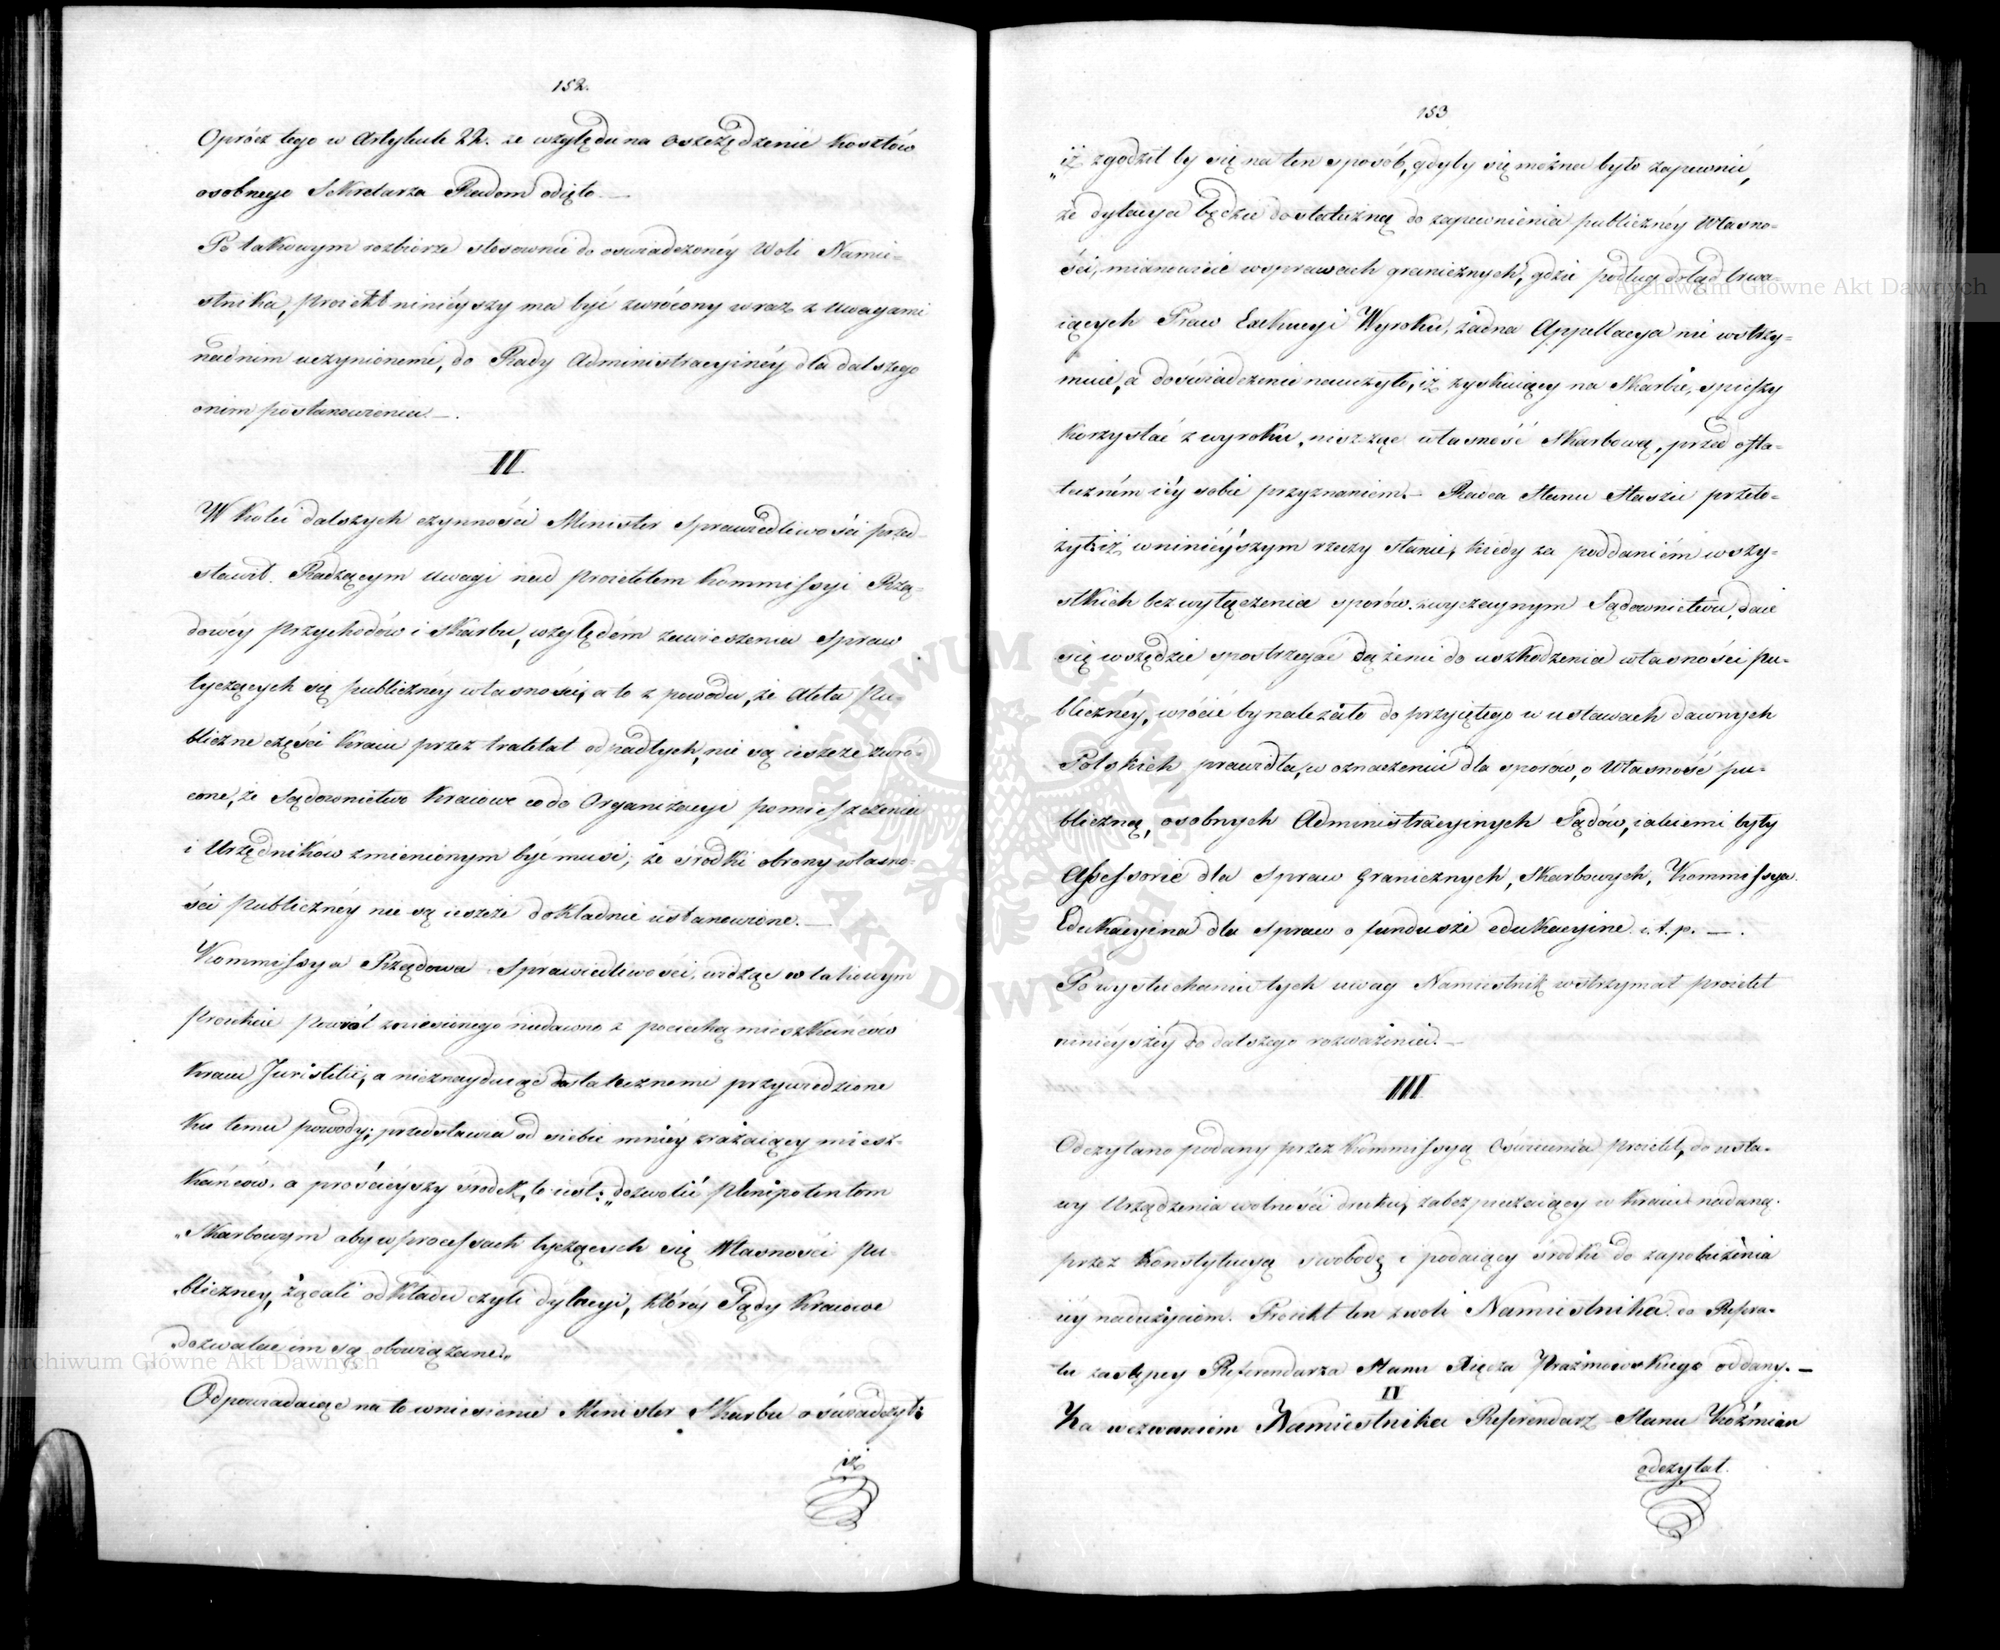 152.
Oprócz tego w Artykule 22. ze względu na oszczędzenie kosztów
osobnego Sekretarza Radom odięto. —
Po takowym rozbiorze stosownie do oswiadczonéy Woli Namie-
stnika, proiekt ninieyszy ma być zwrócony wraz z uwagami
nad nim uczynionemi, do Rady Administracyinéy dla dalszego
o nim postanowienia. —
II
W kolei dalszych czynności Minister Sprawiedliwości przed-
stawił Radzącym uwagi nad proiektem Kommissyi Rzą-
dowéy Przychodów i Skarbu, względem zawieszenia Spraw
tyczących się publicznéy własności, a to z powodu, że Akta Pu-
bliczne części Kraiu przez traktat odpadłych, nie są ieszcze zwró-
cone, że Sądownictwo Kraiowe co do Organizacyi pomieszczenia
i Urzędników zmienionym być musi, że środki obrony własno-
ści publicznéy nie są ieszcze dokładnie ustanowione. —
Kommissya Rządowa Sprawiedliwości, widząc w takowym
Proiekcie powrót zniesionego niedawno z pociechą mieszkańców
Kraiu Juristitii, a nieznayduiąc dostatecznemi przywiedzione
ku temu powody; przedstawia od siebie mniéy zrażaiący miesz-
kańców, a prościéyszy środek, to iest: „dozwolić Plenipotentom
„Skarbowym aby w processach tyczących się Własności Pu-
„blicznéy, żądali odkładu czyli dylacyi, któréy Sądy Kraiowe
dozwalać im są obowiązane„
Odpowiadaiąc na to wniesienie Minister Skarbu oświadczył:
iż
153
„iż zgodził by się na ten sposób, gdyby się można było zapewnić,
że dylacya będzie dostateczną do zapewnienia publicznéy Własno-
ści, mianowicie w sprawach granicznych, gdzie podług dotąd trwa-
iących Praw Exekucyi Wyroku, żadna Appellacya nie wstrzy-
muie, a doswiadczenie nauczyło, iż zyskuiący na Skarbie, spieszy
korzystać z wyroku, niszcząc własność Skarbową, przed osta-
teczném iéy sobie przyznaniem. — Radca Stanu Staszic przeło-
żył iż w ninieyszym rzeczy stanie, kiedy za poddaniem wszy-
stkich bez wyłączenia sporów zwyczaynym Sądownictwu, daie
się wszędzie spostrzegać dążenie do uszkodzenia własności pu-
blicznéy, wrócić by należało do przyiętego w ustawach dawnych
Polskich prawidła, w oznaczeniu dla sporów, o Własność pu-
bliczną, osobnych Administracyinych Sądów, iakiemi były
Assessorie dla Spraw granicznych, Skarbowych, Kommissya
Edukacyina dla Spraw o fundusze edukacyine i. t. p. —.
Po wysłuchaniu tych uwag Namiestnik wstrzymał proiekt
ninieyszy do dalszego rozważenia. —
III
Odczytano podany przez Kommissyą Oświecenia Proiekt, do usta-
wy Urządzenia wolności druku, zabezpieczaiący w Kraiu nadaną
przez Konstytucyą swobodę i podaiący środki do zapobieżenia
iéy nadużyciom. Proiekt ten z woli Namiestnika do Refera-
tu zastępcy Referendarza Stanu Xiędza Prażmowskiego oddany. —
IV
Za wezwaniem Namiestnika Referendarz Stanu Koźmian
odczytał.
Archiwum Główne Akt Dawnych
Archiwum Główne Akt Dawnych
ARCHIWUM GŁÓWNE AKT DAWNYCH